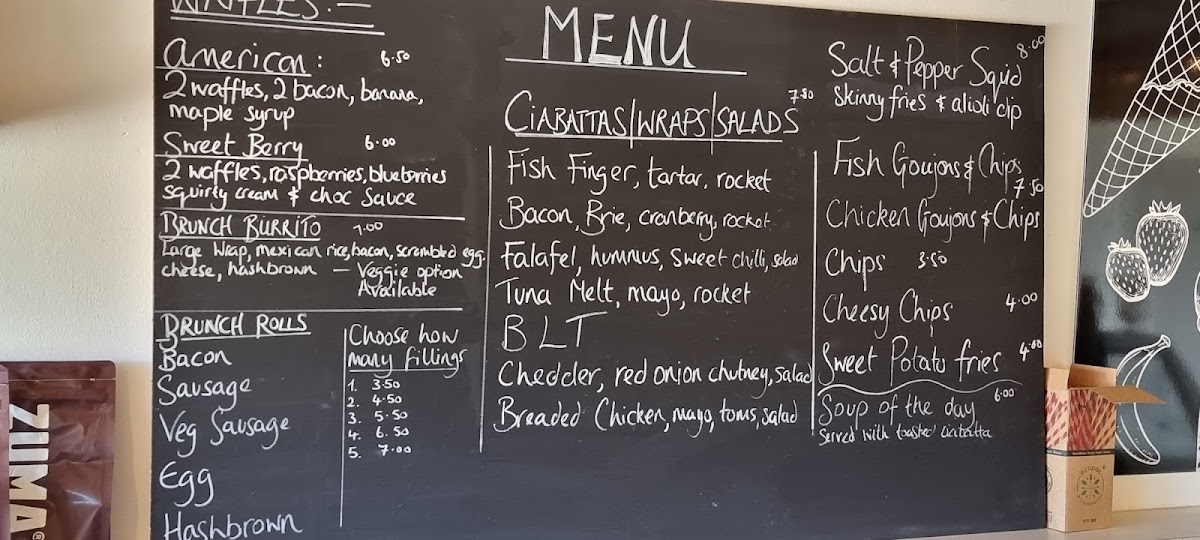 WAFFLES:-
American: 6.50
2 waffles, 2 bacon, banana,
maple syrup
Sweet Berry 6.00
2 waffles, raspberries, blueberries
squirty cream & choc sauce
BRUNCH BURRITO 7.00
Large Wrap, mexican rice, bacon, scrambled egg,
cheese, hashbrown — Veggie option
Available
BRUNCH ROLLS
Bacon
Sausage
Veg Sausage
Egg
Hashbrown
Choose how
many fillings
1. 3.50
2. 4.50
3. 5.50
4. 6.50
5. 7.00
MENU
CIABATTAS|WRAPS|SALADS 7.50
Fish Finger, tartar, rocket
Bacon, Brie, cranberry, rocket
Falafel, hummus, sweet chilli, salad
Tuna Melt, mayo, rocket
BLT
Chedder, red onion chutney, salad
Breaded Chicken, mayo, toms, salad
Salt & Pepper Squid 8.00
Skinny fries & alioli dip
Fish Goujons & Chips
7.50
Chicken Goujons & Chips
Chips 3.50
Cheesy Chips 4.00
Sweet Potato fries 4.00
Soup of the day 6.00
Served with toasted ciabatta
ZUMA®